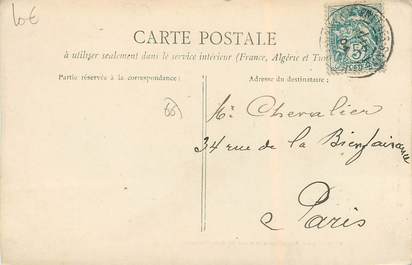 10€
CARTE POSTALE
à utiliser seulement dans le service intérieur (France, Algérie et Tun
Partie réservée à la correspondance:
Adresse du destinataire:
66
Mr Chevalier
34 rue de la Bienfaisance
à Paris